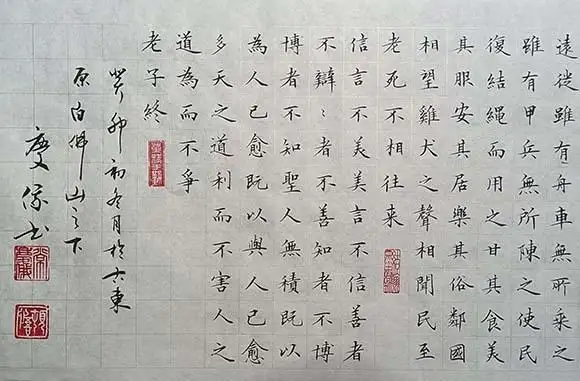 遠徙雖有舟車無所乘之
雖有甲兵無所陳之使民
復結繩而用之甘其食美
其服安其居樂其俗鄰國
相望雞犬之聲相聞民至
老死不相往來
信言不美美言不信善者
不辯〻者不善知者不博
博者不知聖人無積既以
為人己愈既以與人己愈
多天之道利而不害人之
道為而不爭
老子終
癸卯初冬月於大東
原白佛山之下
書